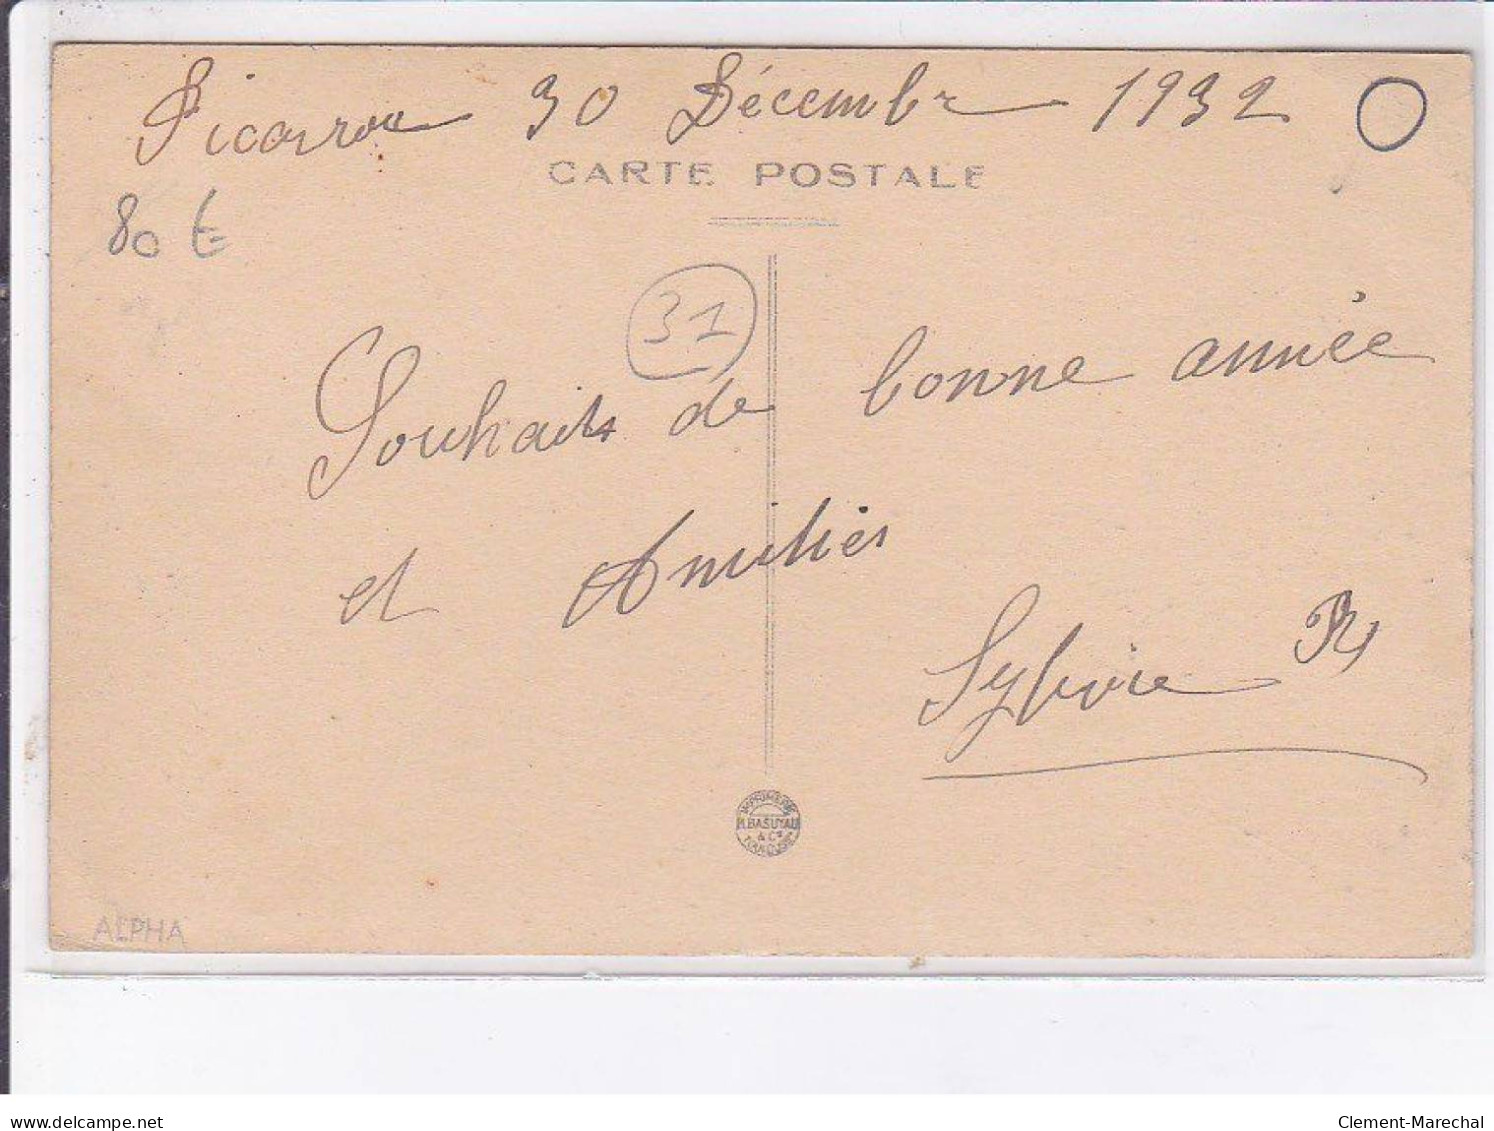 Picarrou 30 Décembre 1932
CARTE POSTALE
80 €
31
Souhaits de bonne année
et Amitiés
Sylvie R
IMPRIMERIE
M.BASUYAU
& Cie
TOULOUSE
ALPHA
delcampe.net
Clement-Marechal